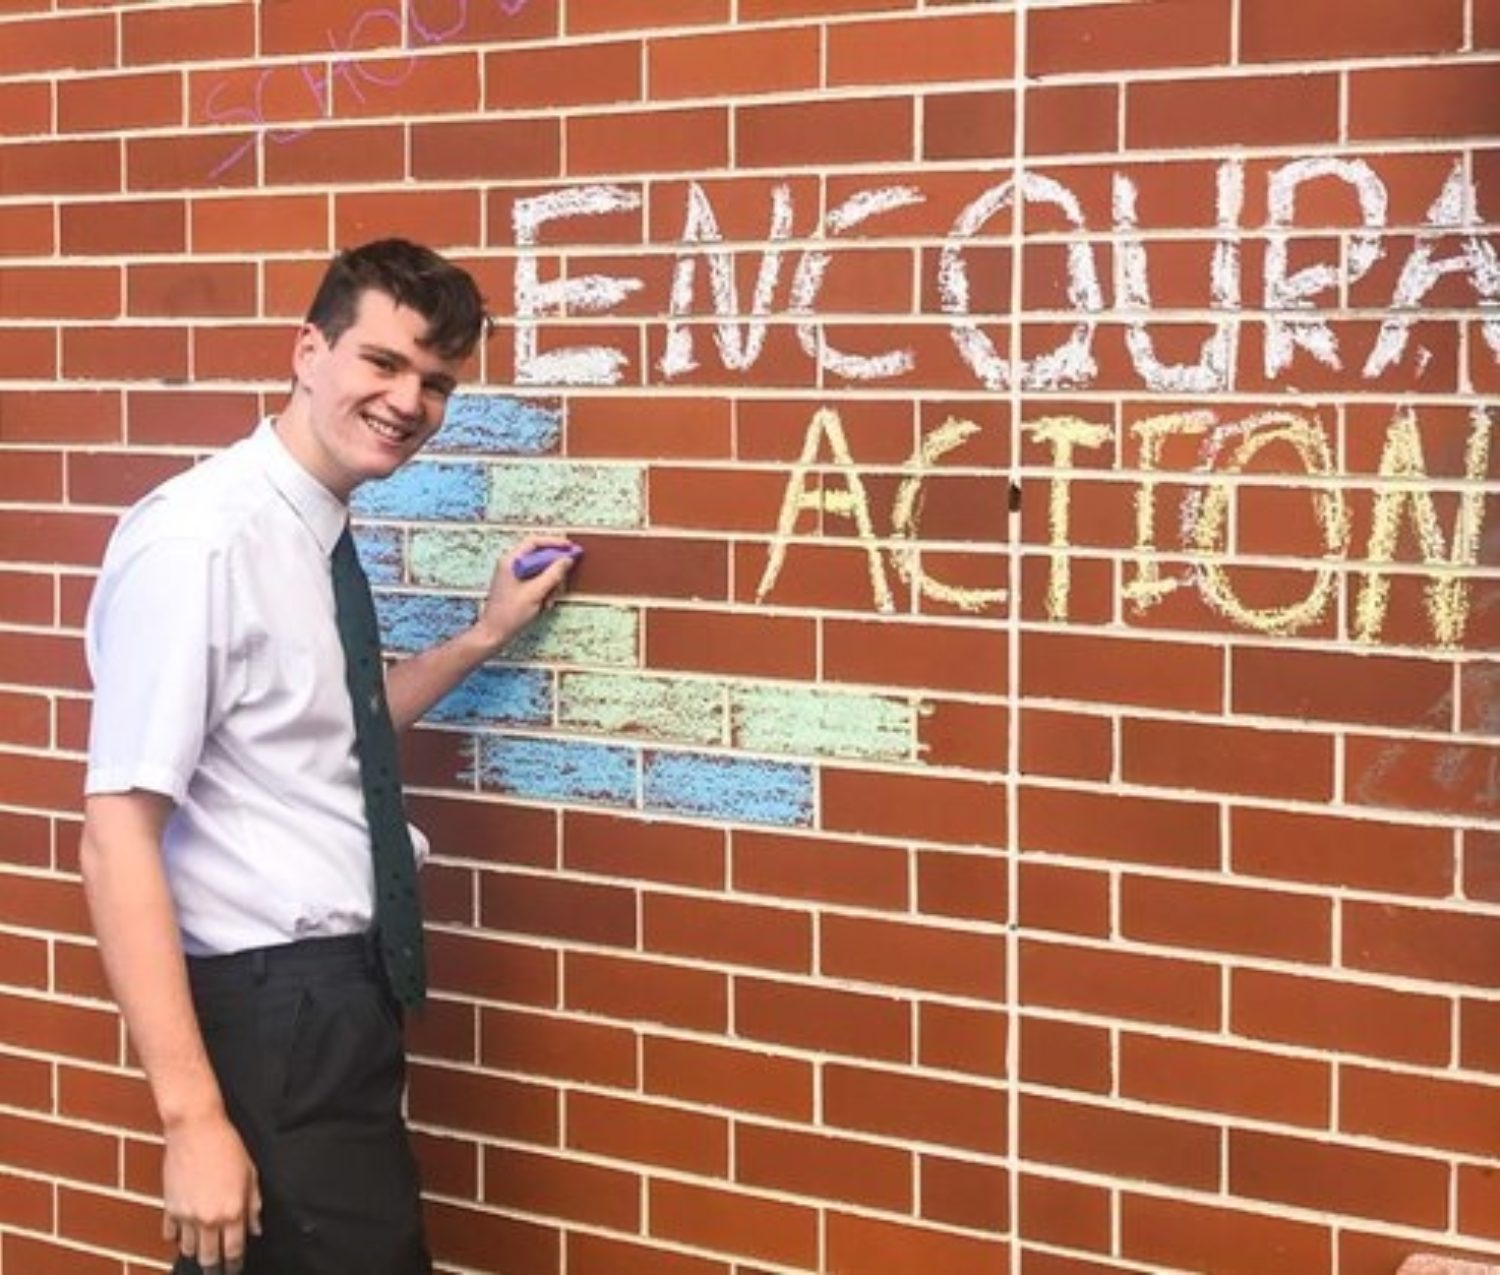 SCHOOL
ENCOURA
ACTION